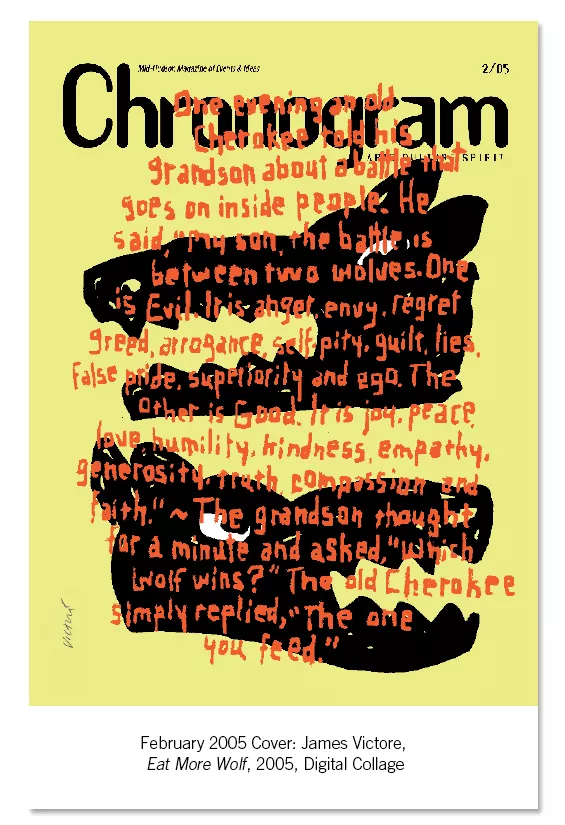 Mid-Hudson Magazine of Events & Ideas
2/05
Chronogram
ARTS CULTURE SPIRIT
One evening an old
Cherokee told his
grandson about a battle that
goes on inside people. He
said, "my son, the battle is
between two wolves. One
is Evil. It is anger, envy, regret
greed, arrogance, self-pity, guilt, lies,
false pride, superiority and ego. The
other is Good. It is joy, peace,
love, humility, kindness, empathy,
generosity, truth, compassion and
faith." ~ The grandson thought
for a minute and asked, "which
wolf wins?" The old Cherokee
simply replied, "The one
you feed."
Victore
February 2005 Cover: James Victore,
Eat More Wolf, 2005, Digital Collage